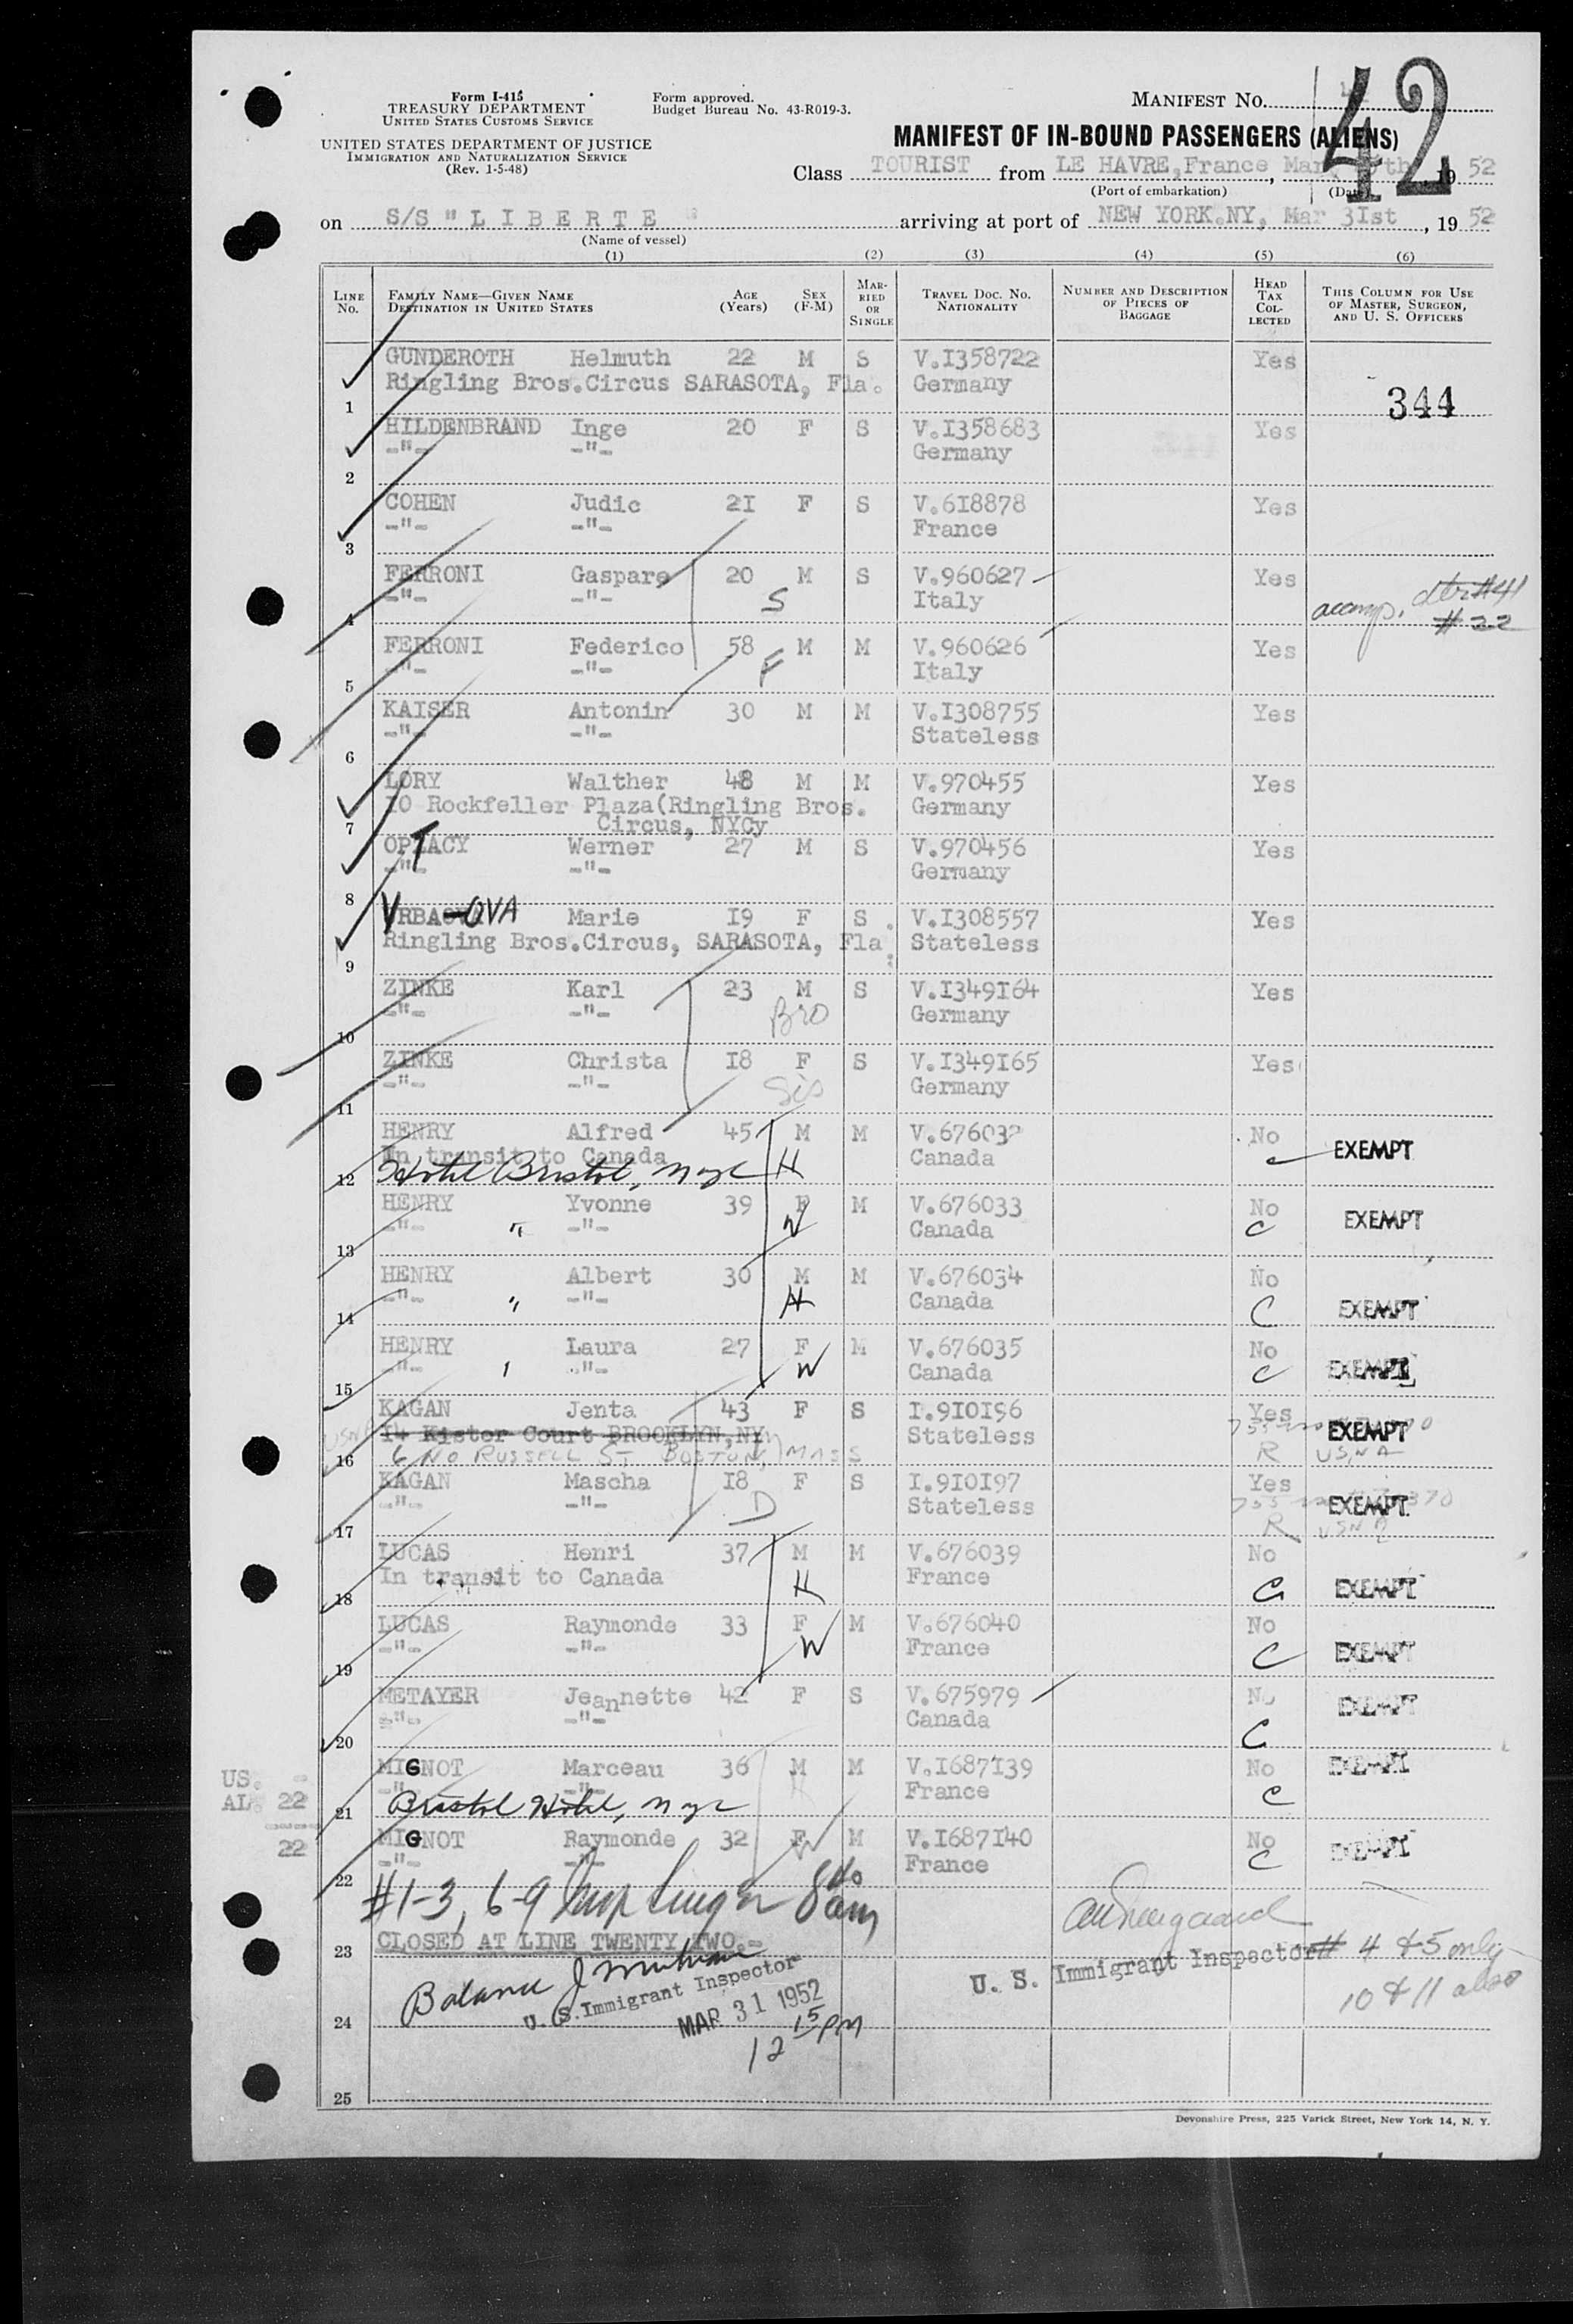 Form I-415
TREASURY DEPARTMENT
UNITED STATES CUSTOMS SERVICE
UNITED STATES DEPARTMENT OF JUSTICE
IMMIGRATION AND NATURALIZATION SERVICE
(Rev. 1-5-48)
Form approved.
Budget Bureau No. 43-R019-3.
MANIFEST NO. 42
MANIFEST OF IN-BOUND PASSENGERS (ALIENS)
Class TOURIST from LE HAVRE,France, Mar. th, 19 52
(Port of embarkation) (Date)
on S/S "LIBERTE" arriving at port of NEW YORK.NY, Mar 3Ist, 19 52
(Name of vessel)
(1) (2) (3) (4) (5) (6)
LINE No. FAMILY NAME—GIVEN NAME DESTINATION IN UNITED STATES AGE (Years) SEX (F-M) MARRIED OR SINGLE TRAVEL DOC. NO. NATIONALITY NUMBER AND DESCRIPTION OF PIECES OF BAGGAGE HEAD TAX COLLECTED THIS COLUMN FOR USE OF MASTER, SURGEON, AND U. S. OFFICERS
GUNDEROTH Helmuth 22 M S V.I358722 Yes
1 Ringling Bros.Circus SARASOTA, Fla. Germany 344
HILDENBRAND Inge 20 F S V.I358683 Yes
2 -"- -"- Germany
COHEN Judic 2I F S V.6I8878 Yes
3 -"- -"- France
FERRONI Gaspare 20 M S V.960627 Yes
4 -"- -"- S Italy accomp. #41 #22
FERRONI Federico 58 M M V.960626 Yes
5 -"- -"- F Italy
KAISER Antonin 30 M M V.I308755 Yes
6 -"- -"- Stateless
LORY Walther 48 M M V.970455 Yes
7 I0 Rockfeller Plaza(Ringling Bros. Germany
Circus, NYCy
OPLACY T Werner 27 M S V.970456 Yes
8 -"- -"- Germany
VRBA-OVA Marie I9 F S V.I308557 Yes
9 Ringling Bros.Circus, SARASOTA, Fla. Stateless
ZINKE Karl 23 M S V.I349I64 Yes
10 -"- -"- Bro Germany
ZINKE Christa I8 F S V.I349I65 Yes
11 -"- -"- Sis Germany
HENRY Alfred 45 M M V.676032 No EXEMPT
In transit to Canada Canada C
12 Hotel Bristol, nyc H
HENRY Yvonne 39 F M V.676033 No EXEMPT
13 -"- " -"- W Canada C
HENRY Albert 30 M M V.676034 No
14 -"- " -"- H Canada C EXEMPT
HENRY Laura 27 F M V.676035 No
15 -"- -"- W Canada C EXEMPT
KAGAN Jenta 43 F S I.9I0I96 Yes EXEMPT
I4 Kistor Court BROOKLYN,NY Stateless
16 6 NO RUSSELL ST BOSTON, MASS R USNA
KAGAN Mascha I8 F S I.9I0I97 Yes
17 -"- -"- D Stateless R EXEMPT USNA
LUCAS Henri 37 M M V.676039 No
18 In transit to Canada H France C EXEMPT
LUCAS Raymonde 33 F M V.676040 No
19 -"- -"- W France C EXEMPT
METAYER Jeannette 42 F S V.675979 No EXEMPT
20 -"- -"- Canada C
MIGNOT Marceau 36 M M V.I687I39 No EXEMPT
-"- -"- H France C
21 Bristol Hotel, nyc
US. -
AL. 22
22
MIGNOT Raymonde 32 F W M V.I687I40 No EXEMPT
22 -"- -"- France C
#1-3, 6-9 8 am
23 CLOSED AT LINE TWENTY TWO.-
U. S. Immigrant Inspector # 4 & 5 only
10 & 11 also
24 Balance J
U. S. Immigrant Inspector
MAR 31 1952
12 15 PM
25
Devonshire Press, 225 Varick Street, New York 14, N. Y.